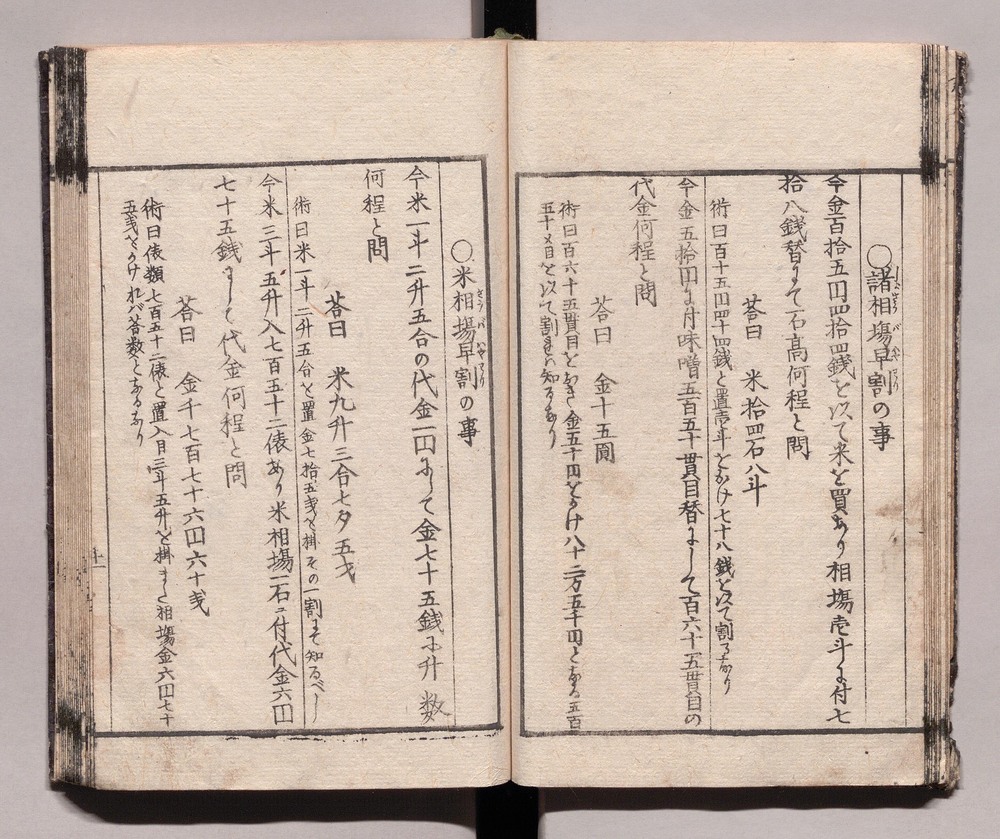 〇諸相場早割の事
今金百拾五円四拾四銭を以て米を買あり相場壱斗に付七
拾八銭替にて石高何程と問
荅曰 米拾四石八斗
術曰百十五円四十四銭と置壱斗をかけ七十八銭を以て割るなり
今金五拾円に付味噌五百五十貫目替にして百六十五貫目の
代金何程と問
荅曰 金十五圓
術曰百六十五貫目をおき金五十円をかけ八十二万五千円となる五百
五十〆目を以て割
〇米相場早割の事
今米一斗二升五合の代金一円にして金七十五銭に升数
何程と問
荅曰 米九升三合七夕五才
術曰米一斗二升五合を置金七拾五戋を掛その一割にて知るべし
今米三斗五升入七百五十二俵あり米相場一石ニ付代金六円
七十五銭にして代金何程と問
荅曰 金千七百七十六円六十戋
術曰俵類七百五十二俵と置入目三斗五升を掛また相場金六円七十
五戋をかけれバ荅数となるなり
十一